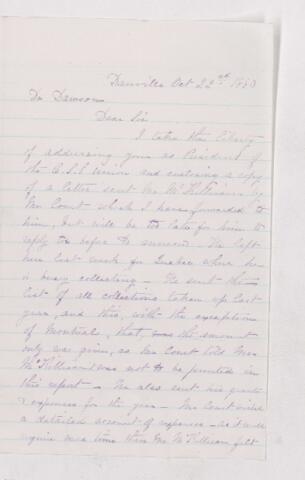 Danville Oct 22nd 1880
Dr Dawson
Dear Sir
I take the liberty
of addressing you as President of
the C.S.S Union and enclosing a copy
of a letter sent Mr McKillican by
Mr Court which I have forwarded to
him, but will be too late for him to
reply to before to morrow. He left
here last week for Quebec where he
is busy collecting - He sent the
list of all collections taken up last
year, and this, with the exception
of Montreal, that, was the amount
only was given, as Mr Court told Mr
McKillican it was not to be printed in
this report - He also sent his
expenses for the year - Mr Court
a detailed account of expenses - as it will
require some time Mr McKillican felt